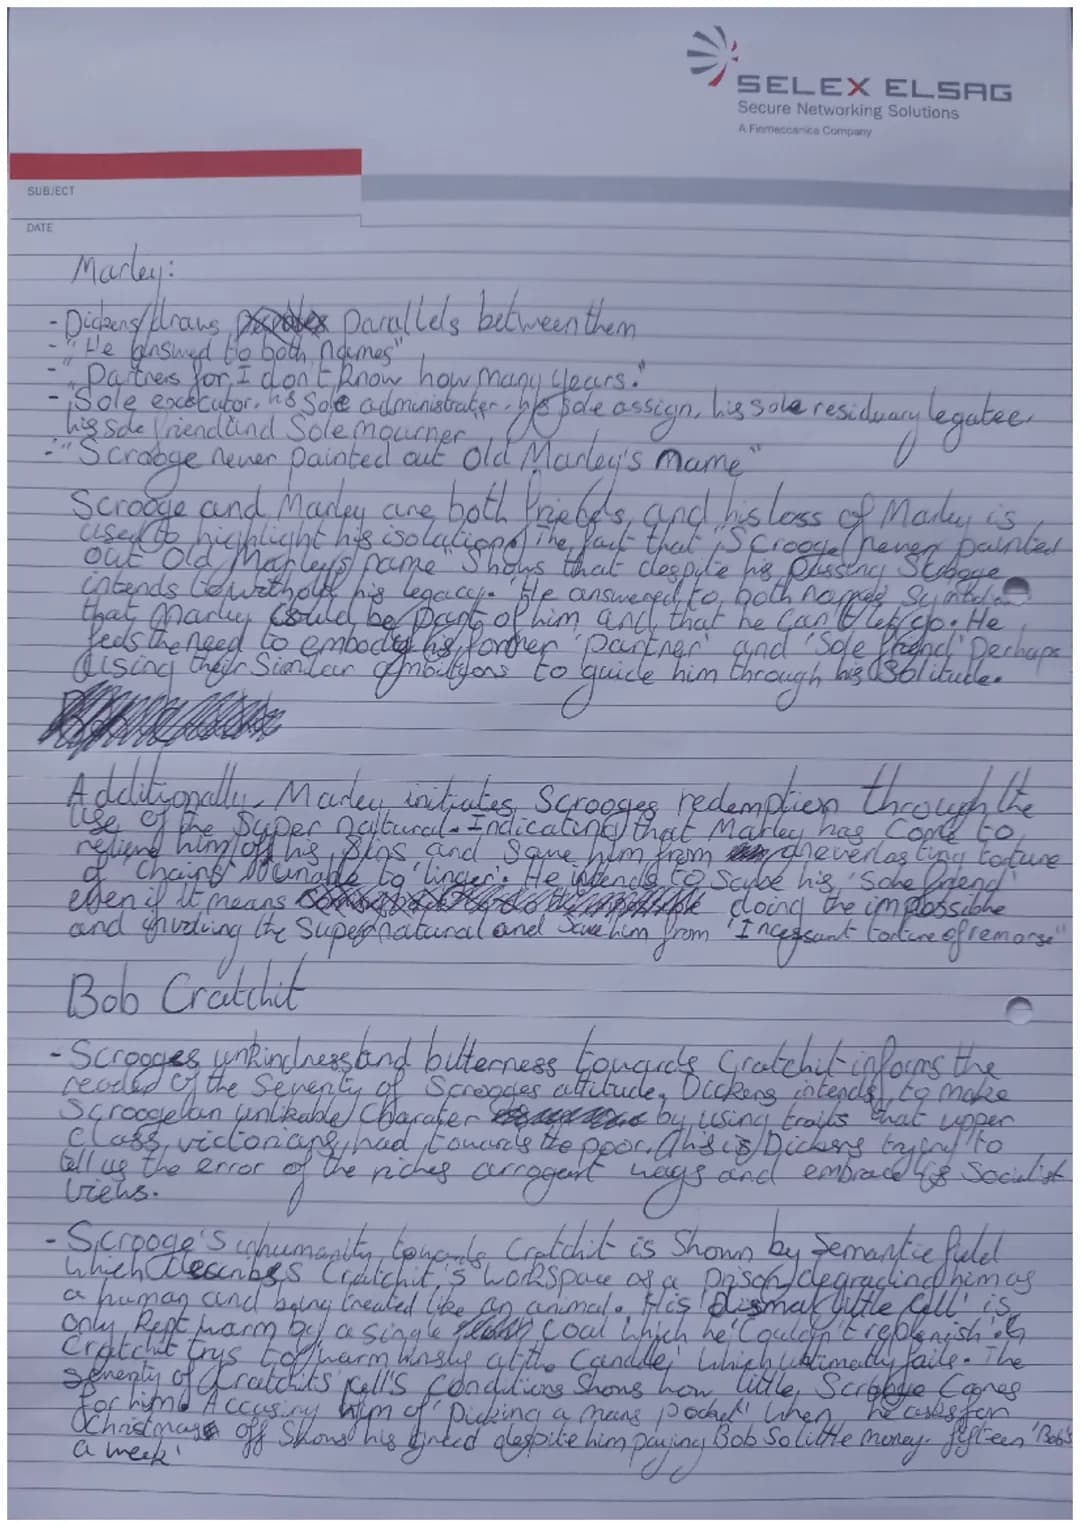 SELEX ELSAG
Secure Networking Solutions
A Finmeccanica Company
SUBJECT
DATE
Marley:
- Dickens draws parallels between them
- "He answed to both names"
- "Partners for I don't know how many years."
- "Sole executor, his Sole administrater, his sole assign, his sole residuary legatee,
his sole friend and Sole mourner
- "Scrooge never painted out Old Marley's name"
Scrooge and Marley are both friends, and his loss of Marley is
used to highlight his isolation. The fact that "Scrooge never painted
out Old Marley's name" shows that despite his passing Scrooge
intends to withold his legacy. 'He answered to both names'
that Marley could be part of him and that he can't let go. He
feels the need to embody his former 'partner' and 'Sole friend' Perhaps
using their Similar ambitions to guide him through his Solitude.
Additionally, Marley initiates Scrooges redemption through the
use of the Super natural. Indicating that Marley has Come to
relieve him of his Sins and Save him from everlasting torture
of 'chains' unable to 'linger'. He intends to Save his 'Sole friend'
even if it means doing the impossible
and the Supernatural and Save him from 'Incessant torture of remorse"
Bob Cratchit
- Scrooges unkindness and bitterness towards Cratchit informs the
reader of the Severity of Scrooges attitude, Dickens intends to make
Scrooge an unlikable Charater by using traits that upper
Class victorians had towards the poor. This is Dickens trying to
tell us the error of the riches arrogant ways and embrace his Socialist
views.
- Scrooge's inhumanity towards Cratchit is Shown by Semantic field
which describes Cratchit's workspace as a prison, degrading him as
a human and being treated like an animal. His 'dismal little Cell' is
only kept warm by a single coal which he 'Couldn't replenish'.
Cratchit trys to 'warm himself at the Candle,' which ultimatly fails. The
Severity of Cratchits 'Cell's Conditions Shows how little Scrooge Cares
for him. Accusing him of 'Picking a mans pocket' when he asks for
Christmas off Shows his greed despite him paying Bob So little money. fifteen 'Bob's
a week'